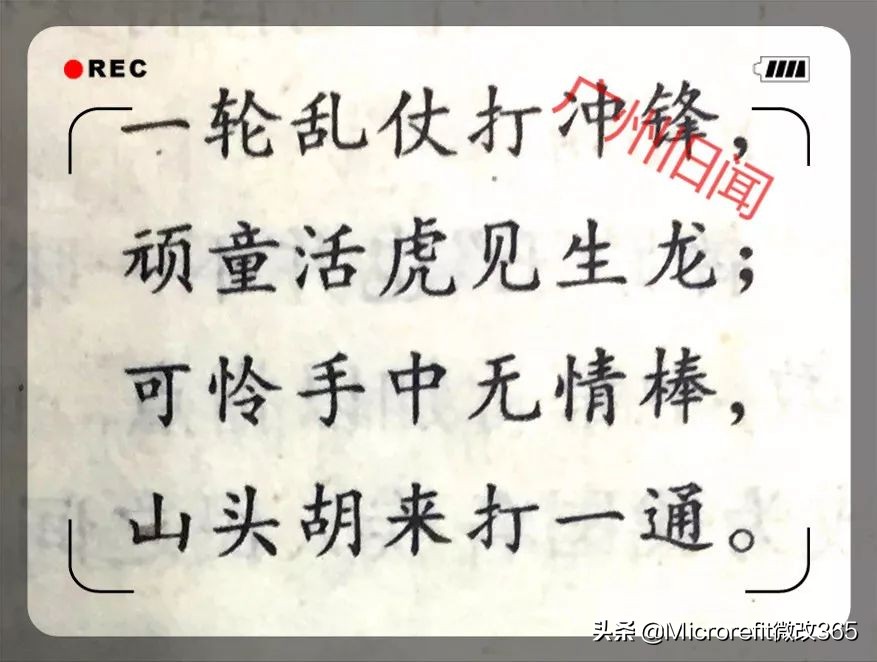 REC
一轮乱仗打冲锋，
广州旧闻
顽童活虎见生龙；
可怜手中无情棒，
山头胡来打一通。
头条 @Microrefit微改365